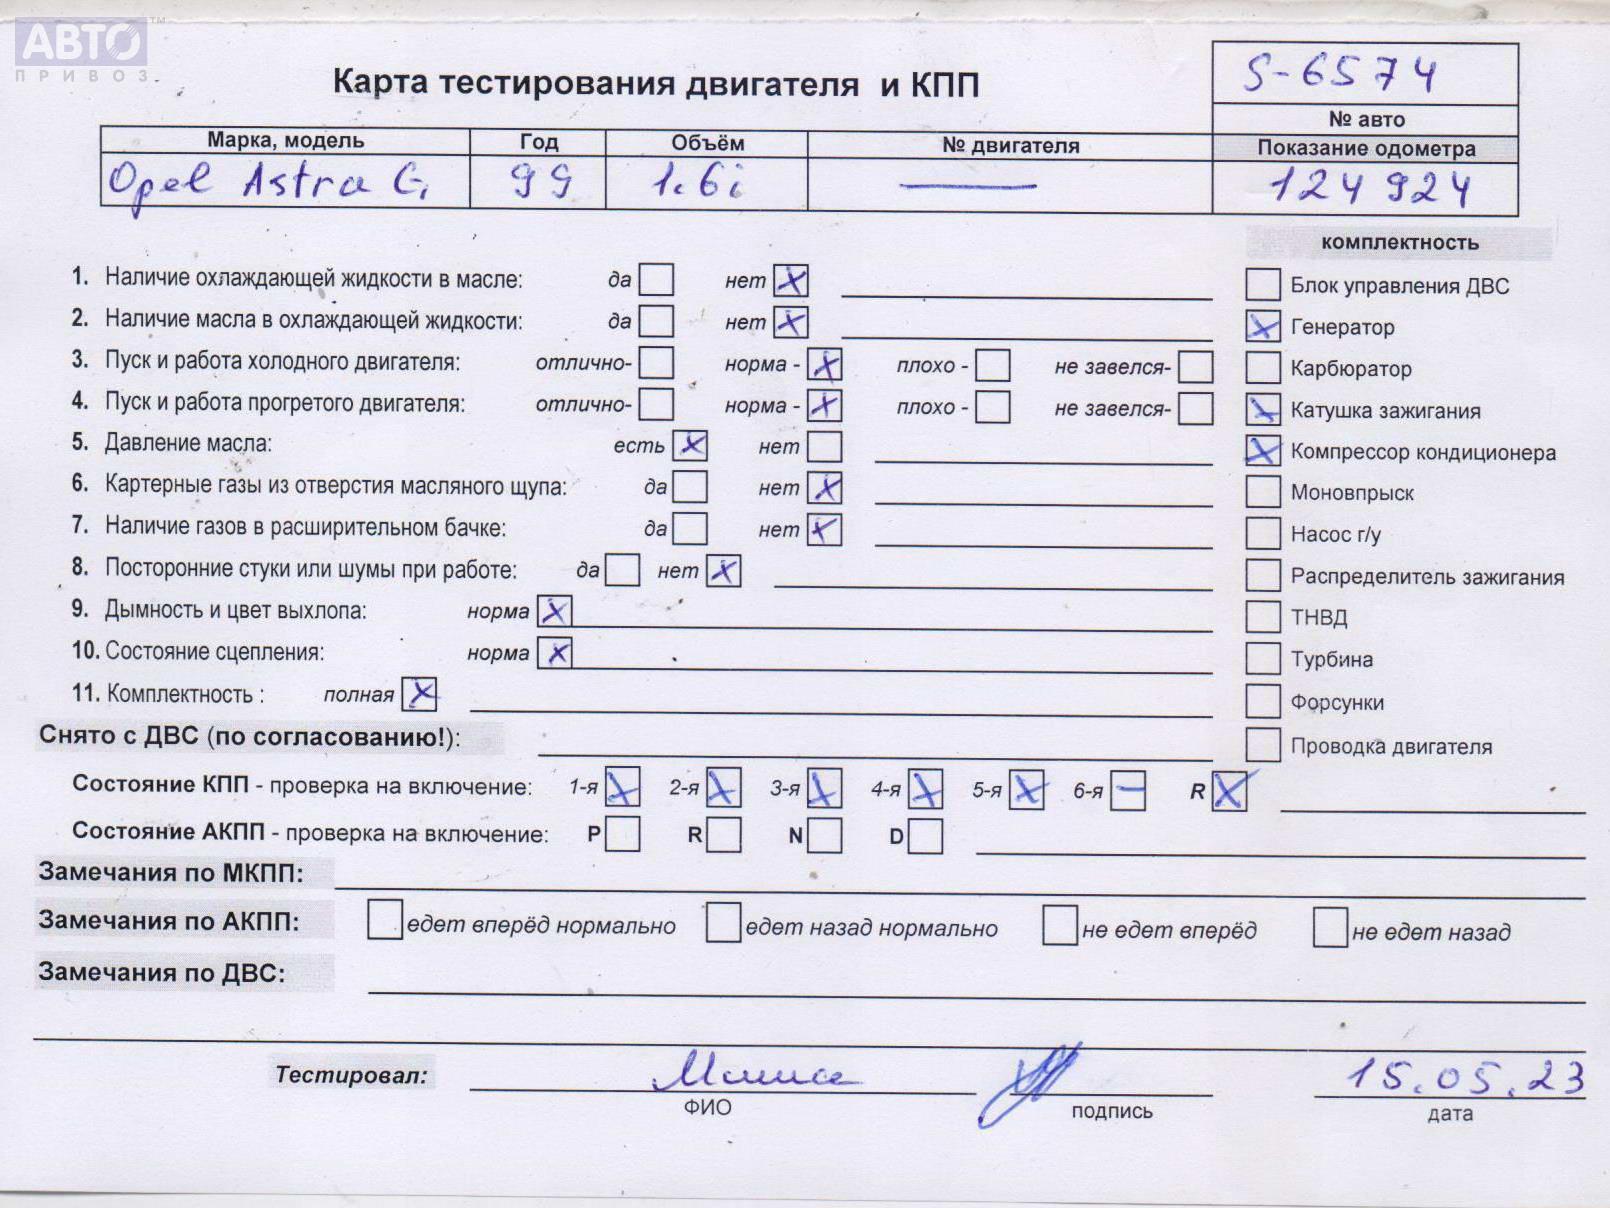 АВТО
ПРИВОЗ
ТМ
Карта тестирования двигателя и КПП
S-6574
№ авто
Марка, модель Год Объём № двигателя Показание одометра
Opel Astra G 99 1.6i — 124 924
комплектность
1. Наличие охлаждающей жидкости в масле: да нет X
Блок управления ДВС
2. Наличие масла в охлаждающей жидкости: да нет X
X Генератор
3. Пуск и работа холодного двигателя: отлично- норма - X плохо - не завелся-
Карбюратор
4. Пуск и работа прогретого двигателя: отлично- норма - X плохо - не завелся-
X Катушка зажигания
5. Давление масла: есть X нет
X Компрессор кондиционера
6. Картерные газы из отверстия масляного щупа: да нет X
Моновпрыск
7. Наличие газов в расширительном бачке: да нет X
Насос г/у
8. Посторонние стуки или шумы при работе: да нет X
Распределитель зажигания
9. Дымность и цвет выхлопа: норма X
ТНВД
10. Состояние сцепления: норма X
Турбина
11. Комплектность : полная X
Форсунки
Снято с ДВС (по согласованию!):
Проводка двигателя
Состояние КПП - проверка на включение: 1-я X 2-я X 3-я X 4-я X 5-я X 6-я — R X
Состояние АКПП - проверка на включение: P R N D
Замечания по МКПП:
Замечания по АКПП: едет вперёд нормально едет назад нормально не едет вперёд не едет назад
Замечания по ДВС:
Тестировал: Миша 15.05.23
ФИО подпись дата